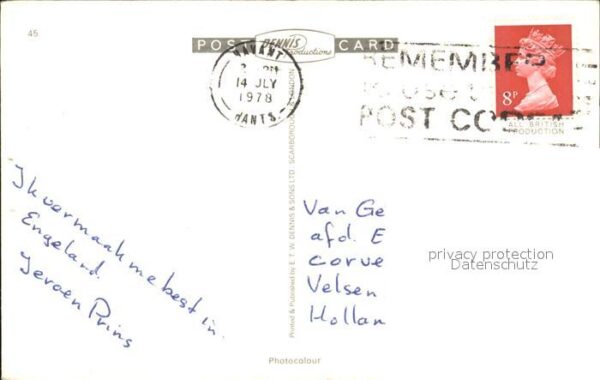 45
POST CARD
DENNIS
Productions
HAVANT
14 JLY
1978
HANTS.
REMEMBER
to use t
POST COD
8P
ALL BRITISH
PRODUCTION
Ik vermaak me best in
Engeland.
Jeroen Prins
Printed & Published by E. T. W. DENNIS & SONS LTD. SCARBOROUGH & LONDON
Van Ge
afd. E
corve
Velsen
Hollan
privacy protection
Datenschutz
Photocolour